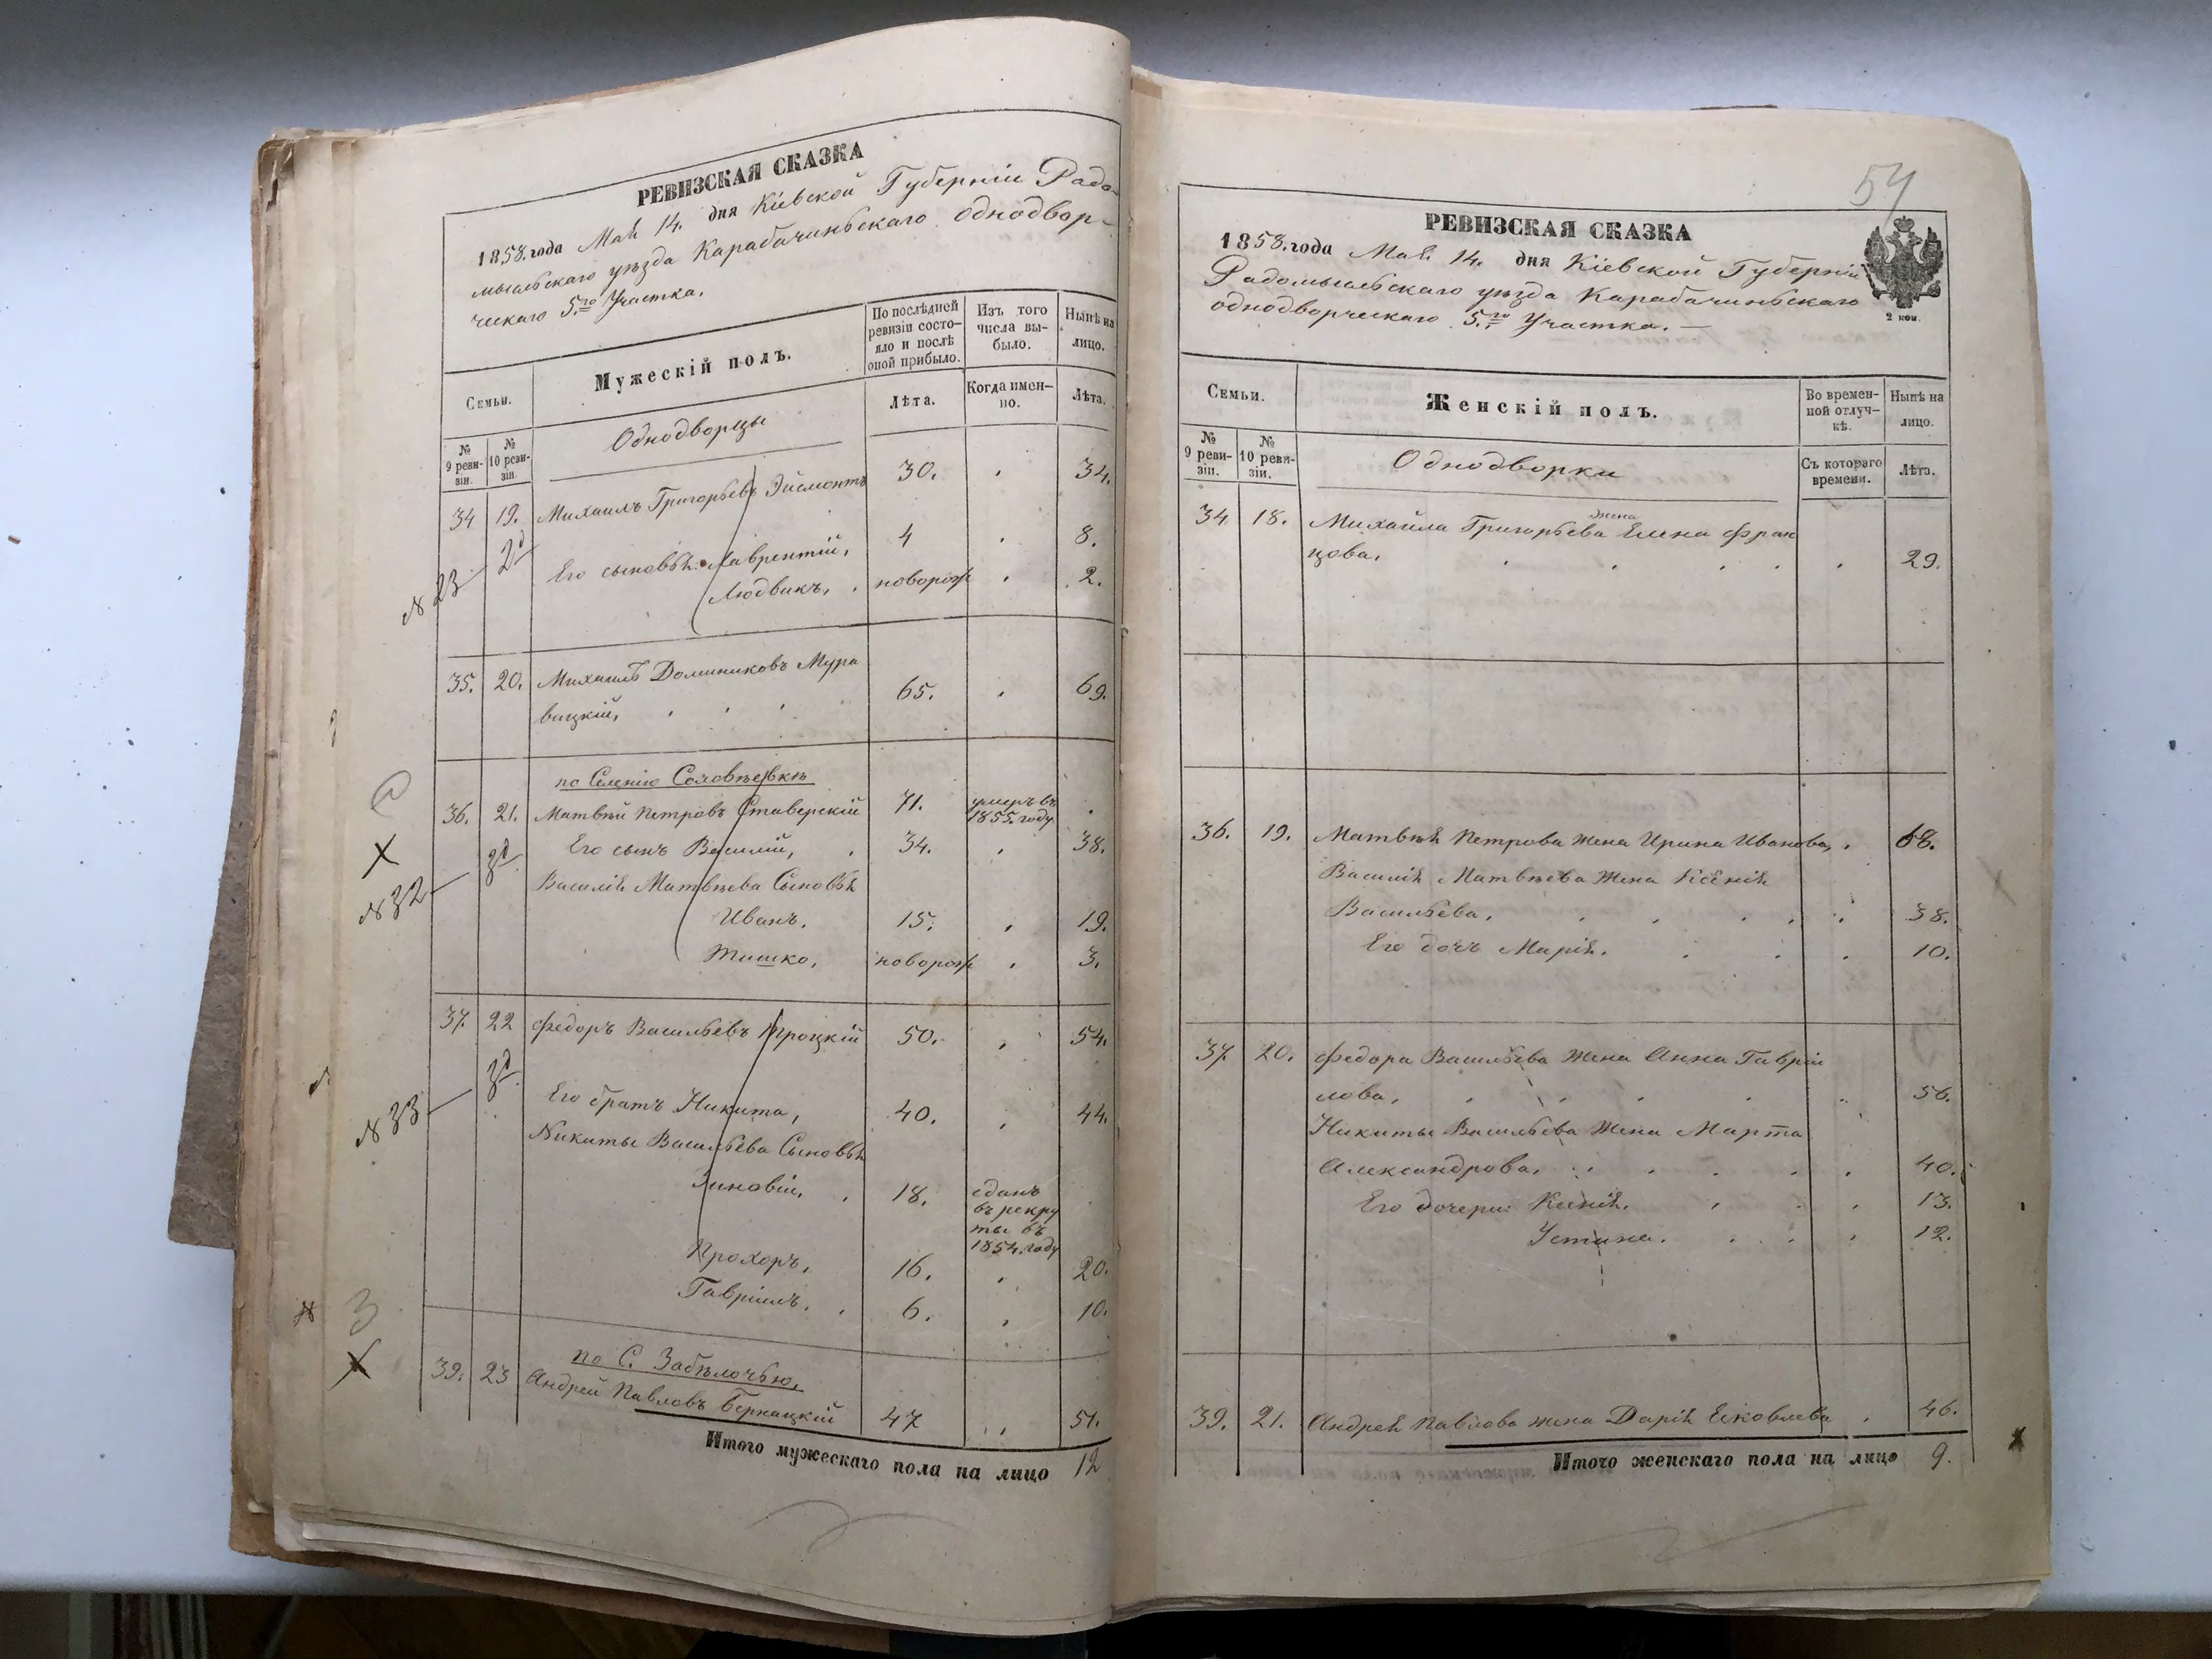 РЕВИЗСКАЯ СКАЗКА
1858. года Мая 14. дня Кіевской Губерніи Радо-
мысльскаго уѣзда Карабачинскаго однодвор-
ческаго 5.го Участка.
Семьи.
Мужескій полъ.
По послѣдней ревизіи состо-
яло и послѣ
оной прибыло.
Изъ того
числа вы-
было.
Нынѣ на
лицо.
№
9 реви-
зіи.
№
10 реви-
зіи.
Однодворцы
Лѣта.
Когда имен-
но.
Лѣта.
34 19. Михаилъ Григорьевъ Эйсмонтъ 30. 34.
№ 23 2д
Его сыновья: Лаврентій, 4 8.
Людвикъ, новорож 2.
35. 20. Михаилъ Доминиковъ Мура
вицкій, 65. 69.
по Селенію Соловьевкѣ
36. 21. Матвѣй Петровъ Ставерскій 71. умеръ въ
1855. году
Его сынъ Василій, 34. 38.
№ 32 3д
Василія Матвѣева Сыновья
Иванъ. 15. 19.
Тишко, новорож 3.
37. 22 Федоръ Васильевъ Троцкій 50. 54.
№ 33 3д
Его братъ Никита, 40. 44.
Никиты Васильева Сыновья
Зиновій, 18. сданъ
въ рекру
ты въ
1854. году
Прохоръ, 16. 20.
Гавріилъ, 6. 10.
3
по С. Забѣлочью,
39. 23 Андрей Павловъ Бернацкій 47 51.
Итого мужескаго пола на лицо 12
54
РЕВИЗСКАЯ СКАЗКА
1858. года Мая 14. дня Кіевской Губерніи
Радомысльскаго уѣзда Карабачинскаго
однодворческаго 5.го Участка. —
2 коп.
Семьи.
Женскій полъ.
Во времен-
ной отлуч-
кѣ.
Нынѣ на
лицо.
№
9 реви-
зіи.
№
10 реви-
зіи.
Однодворки
Съ котораго
времени.
Лѣта.
жена
34 18. Михаила Григорьева Елена Фран
цова, 29.
36. 19. Матвѣя Петрова жена Ирина Иванова, 68.
Василія Матвѣева жена Ксенія
Васильева, 38.
Его дочь Марія. 10.
37 20. Федора Васильева жена Анна Гаврии
лова, 56.
Никиты Васильева жена Марта
Александрова, 40.
Его дочери: Ксенія, 13.
Устина. 12.
39. 21. Андрея Павлова жена Дарія Яковлева 46.
Итого женскаго пола на лицо 9.